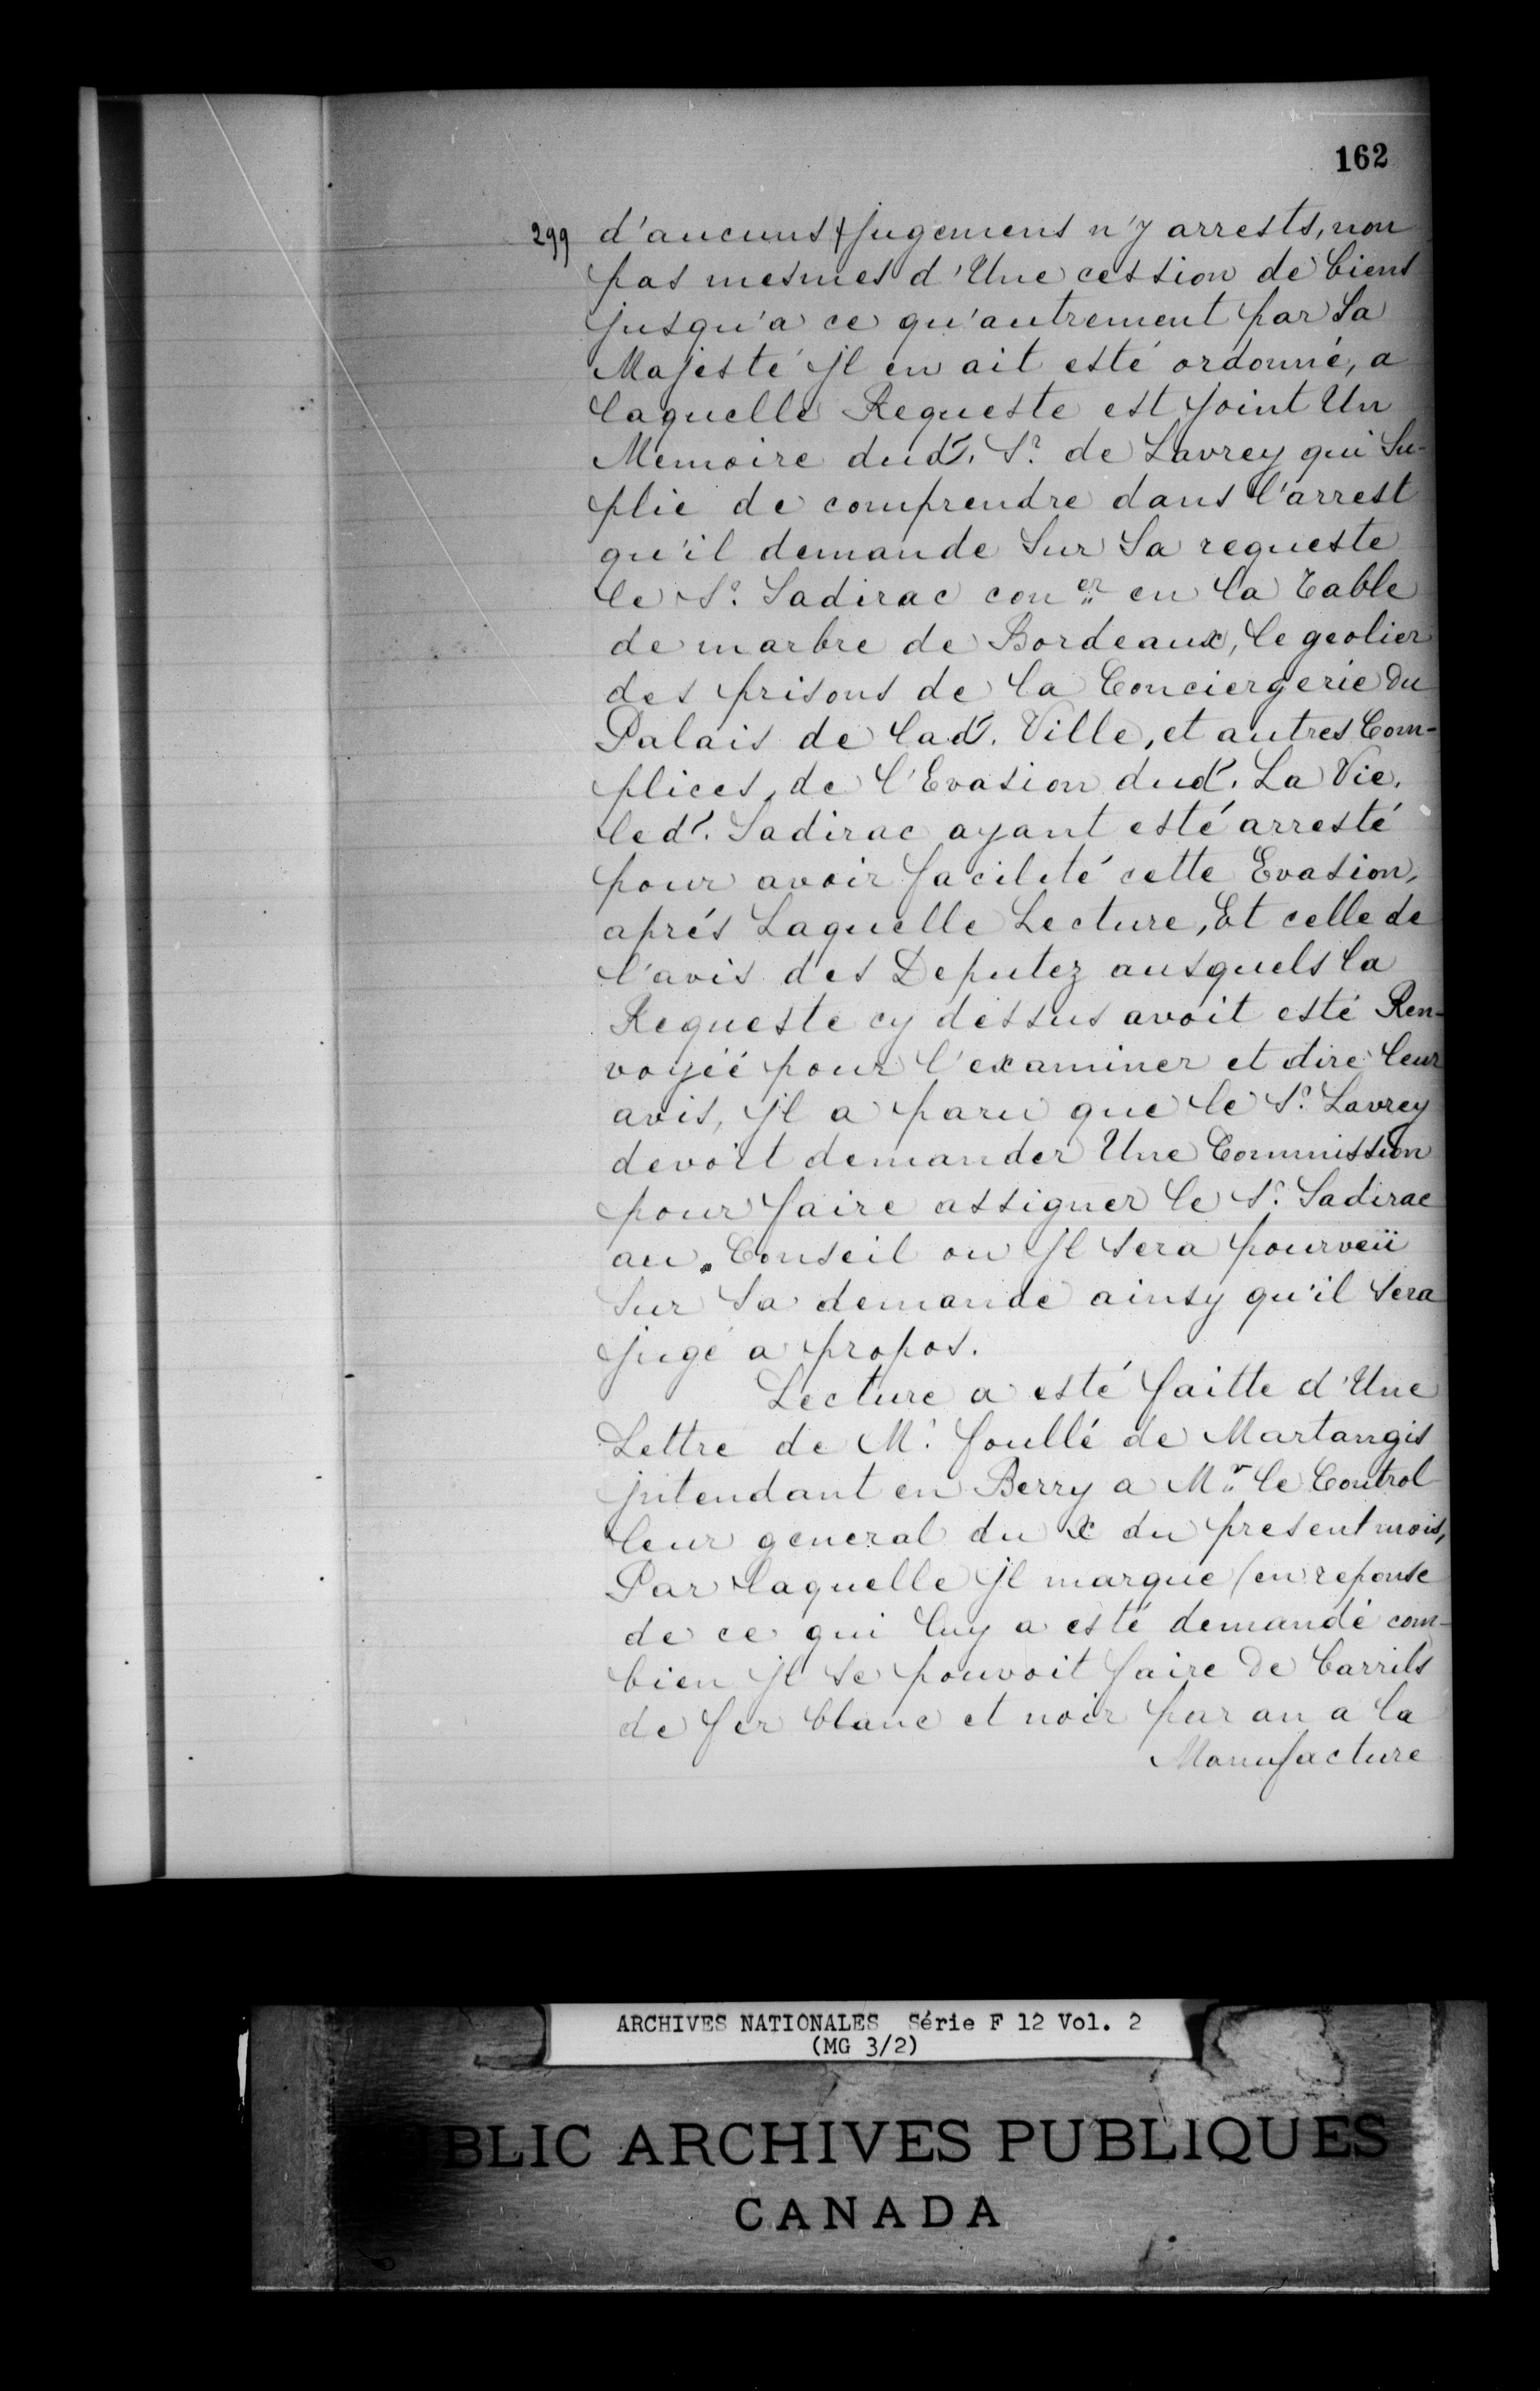 162
299 d'aucuns jugemens n'y arrests, non
pas mesmes d'Une cession de biens
jusqu'a ce qu'autrement par Sa
Majesté jl en ait esté ordonné, a
laquelle Requeste est joint Un
Memoire dudt. Sr. de Lavrey qui Su-
plie de comprendre dans l'arrest
qu'il demande Sur Sa requeste
le Sr. Sadirac coner en la table
de marbre de Bordeaux, le geolier
des prisons de la Conciergerie du
Palais de ladt. Ville, et autres Com-
plices, de l'Evasion dudt. La Vie.
ledt. Sadirac ayant esté arresté
pour avoir facilité cette Evasion,
aprés Laquelle Lecture, Et celle de
l'avis des Deputez ausquels la
Requeste cy dessus avoit esté Ren-
voyéé pour l'examiner et dire leur
avis, jl a paru que le Sr. Lavrey
devoit demander Une Commission
pour faire assigner le Sr. Sadirac
au Conseil ou jl sera pourveü
Sur Sa demande ainsy qu'il sera
jugé a propos.
Lecture a esté faitte d'Une
Lettre de Mr. foullé de Martangis
jntendant en Berry a Mr. le Control
leur general du X du present mois,
Par laquelle jl marque (en reponse
de ce qui luy a esté demandé com-
bien jl se pouvoit faire de barrils
de fer blanc et noir par an a la
Manufacture
ARCHIVES NATIONALES Série F 12 Vol. 2
(MG 3/2)
BLIC ARCHIVES PUBLIQUES
CANADA